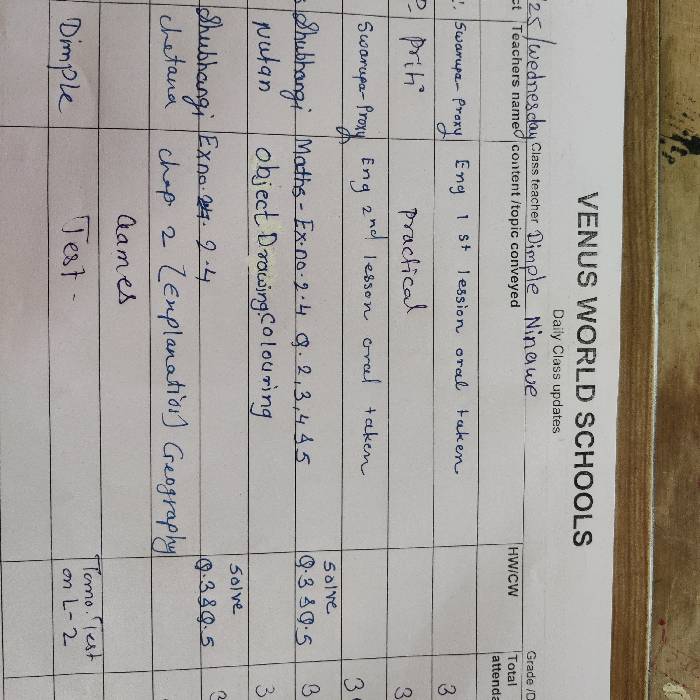 VENUS WORLD SCHOOLS
Daily Class updates
25 / Wednesday Class teacher Dimple Ninawe Grade /D
ct Teachers name content /topic conveyed HW/CW Total attenda
Swarupa - Proxy Eng 1 st lession oral taken 3
Priti Practical 3
Swarupa - Proxy Eng 2nd lesson oral taken 3
Shubhangi Maths - Ex.no. 2.4 Q. 2,3,4 & 5 Solve Q.3 & Q.5 3
Nutan Object Drawing Colouring 3
Shubhangi Ex no. 2.4 Solve Q.3 & Q.5
Chetana chap. 2 (Explanation) Geography
Games
Dimple Test - Tomo. Test on L-2